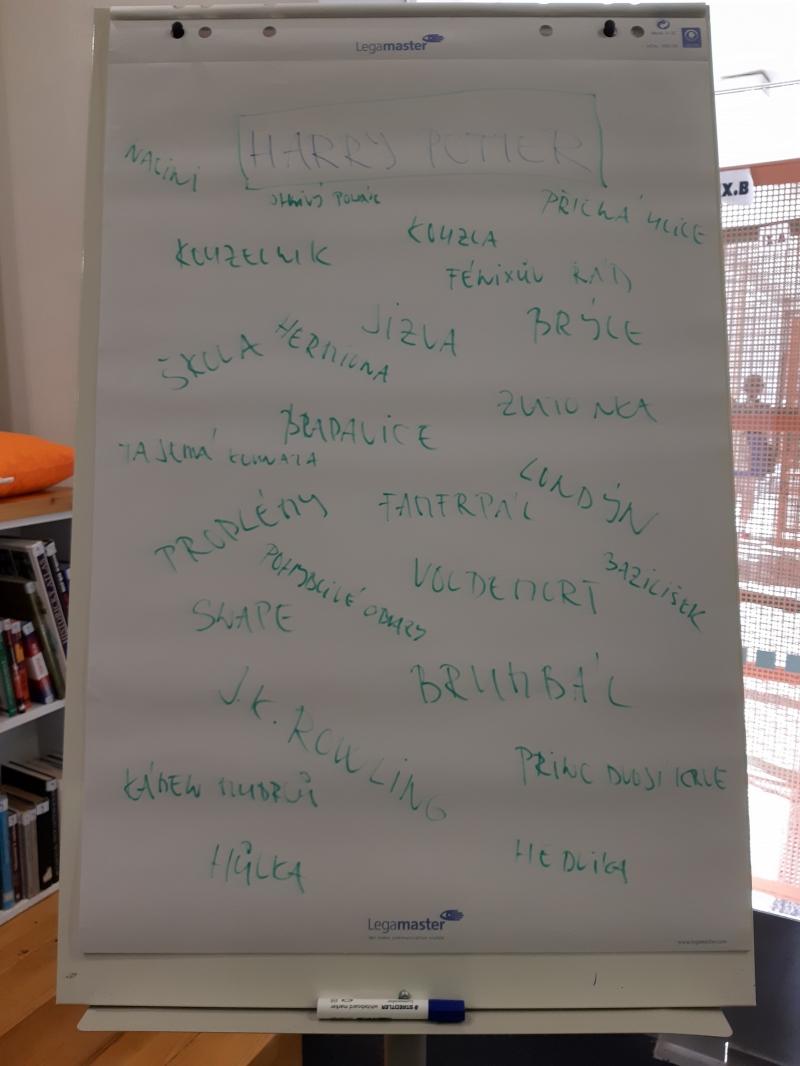 Legamaster
X.B
HARRY POTTER
NAGINI
OHNIVÝ POHÁR
PŘÍČNÁ ULICE
KOUZELNÍK
KOUZLA
FÉNIXŮV ŘÁD
JIZVA
BRÝLE
ŠKOLA
HERMIONA
ZLATONKA
BRADAVICE
TAJEMÁ KOMNATA
LONDÝN
FAMFRPÁL
PROBLÉMY
POHYBLIVÉ OBRAZY
VOLDEMORT
BAZILIŠEK
SNAPE
BRUMBÁL
J.K. ROWLING
PRINC DVOJÍ KRVE
KÁMEN MUDRCŮ
HŮLKA
HEDVIKA
Legamaster
www.legamaster.com
STAEDTLER
whiteboard marker